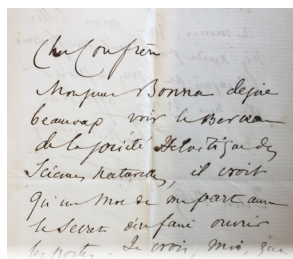 Cher Confrère
Monsieur Bonna désire
beaucoup voir le Berceau
de la Société Helvétique des
Sciences naturelles, il croit
qu'un mot de ma part aura
le secret d'en faire ouvrir
les portes. Je crois, moi, que